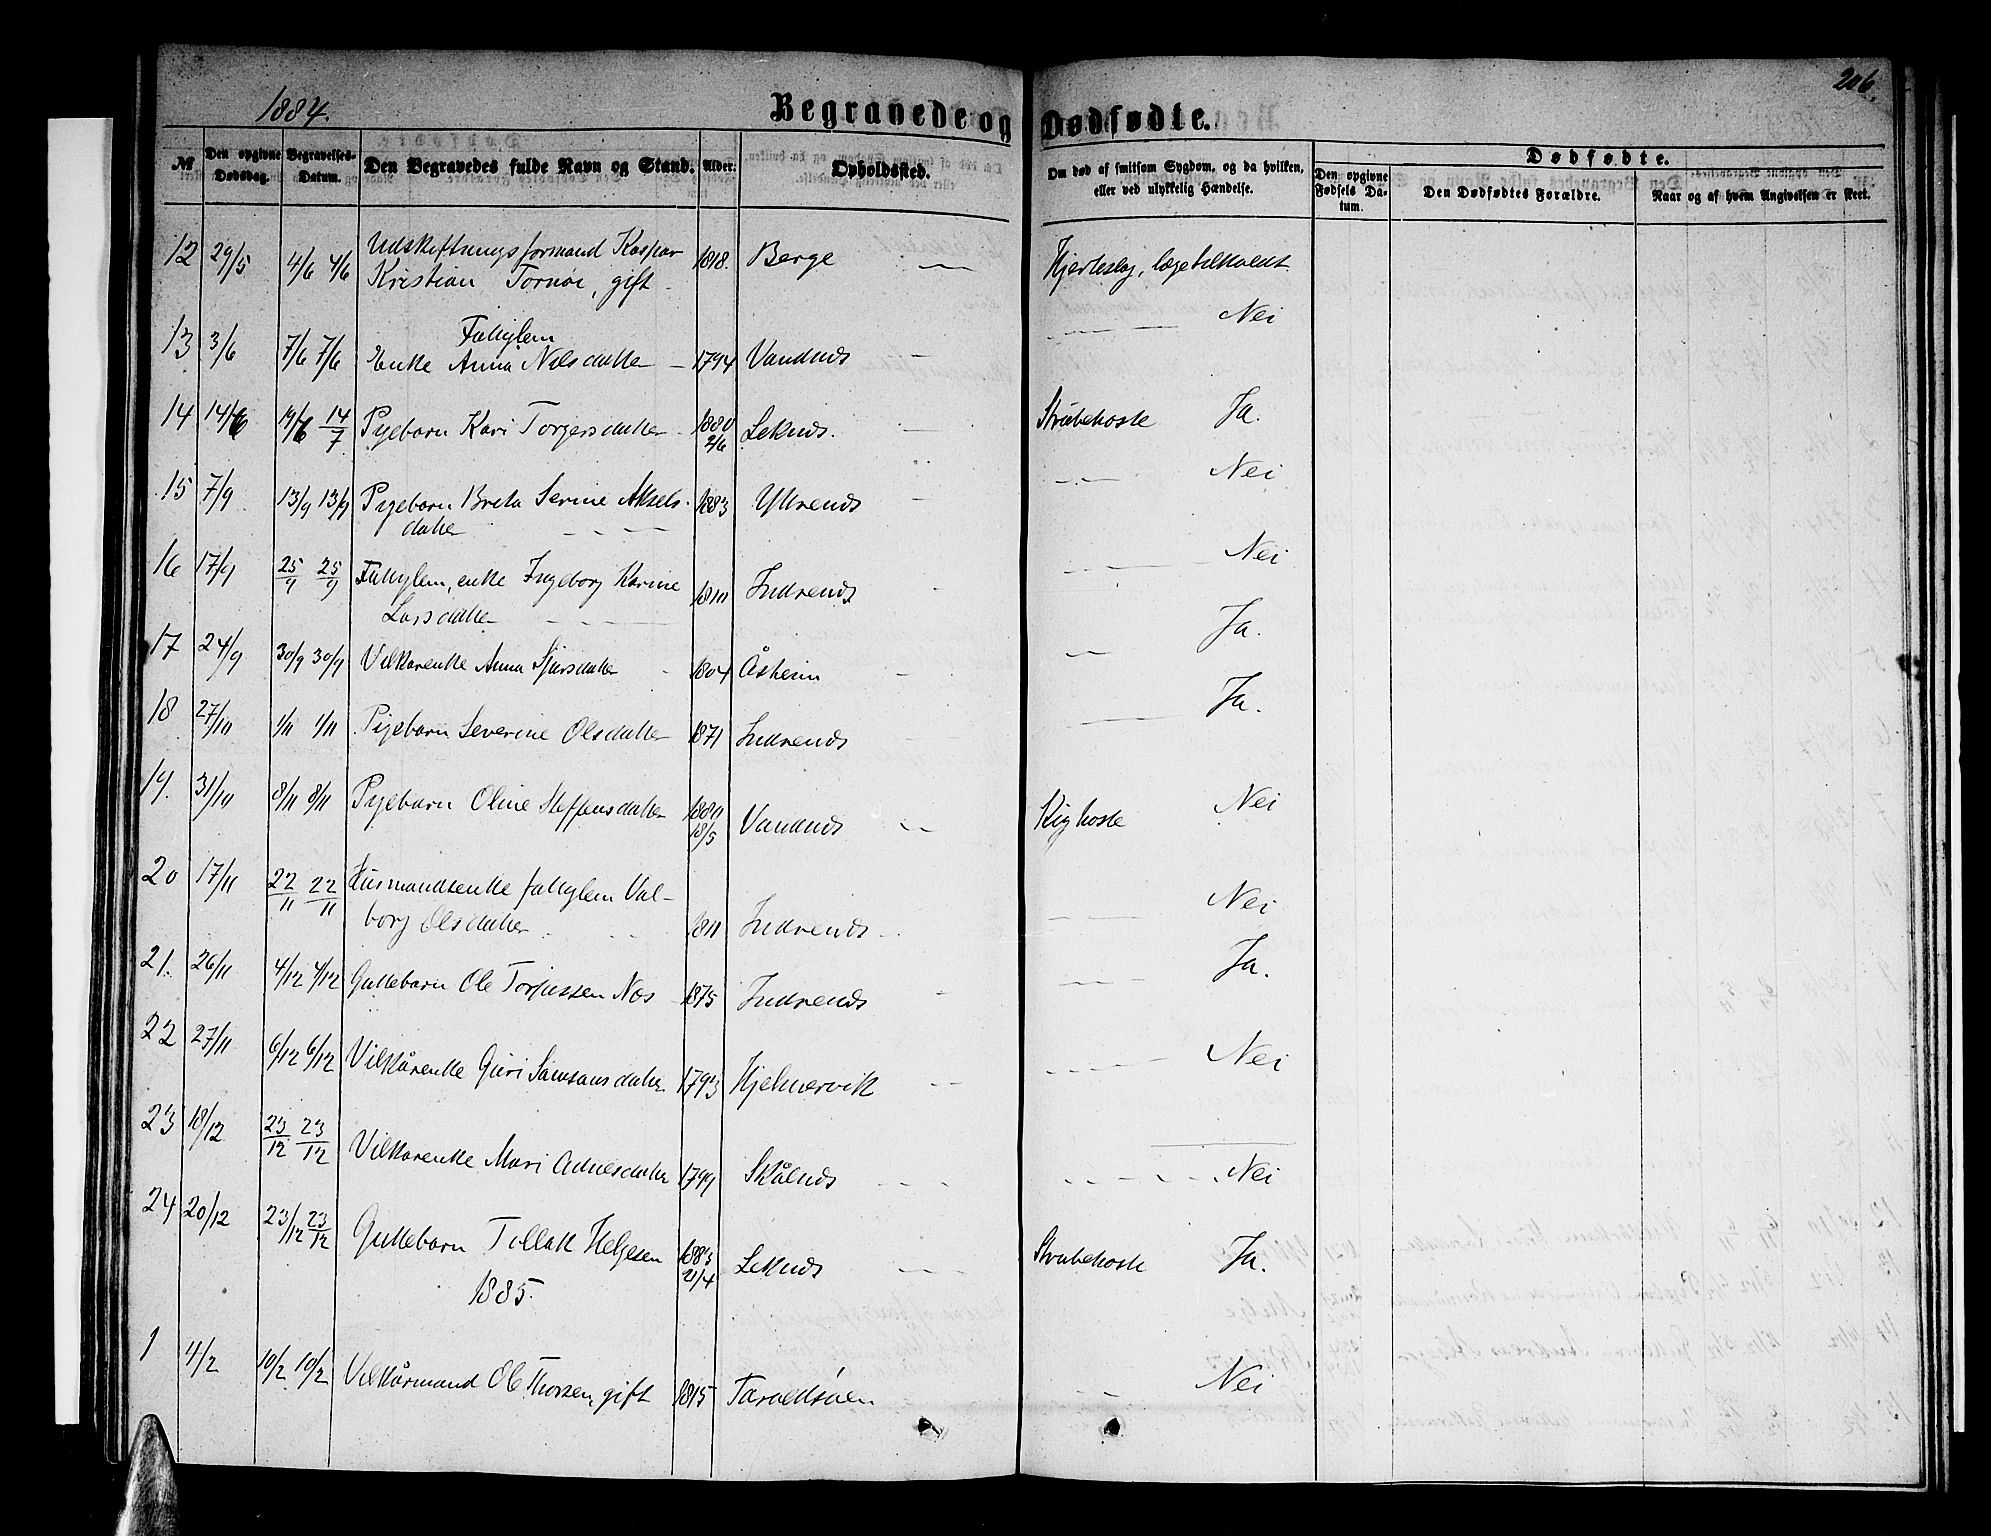 1884.
Begravede og Dødfødte.
206.
№
Den opgivne Dødsdag.
Begravelses-Datum.
Den Begravedes fulde Navn og Stand.
Alder.
Opholdsted.
Om død af smitsom Sygdom, og da hvilken, eller ved ulykkelig Hændelse.
Dødfødte.
Den opgivne Fødsels Datum.
Den Dødfødtes Forældre.
Naar og af hvem Angivelsen er skeet.
12 29/5 4/6 4/6 Udskiftningsformand Kaspar 1818. Berge — Hjerteslag, lægetilkaldt
Kristian Tornøe, gift
Nei
13 3/6 7/6 7/6 Fattiglem
Enke Anna Nilsdatter — 1794 Vandnes —
14 14/6 19/6 14/7 Pigebarn Kari Torgersdatter 1880 2/6 Leknes. — Strubehoste Ja.
15 7/9 13/9 13/9 Pigebarn Breta Serine Aksels- 1883 Yttrenes — Nei
datter
16 17/9 25/9 25/9 Fattiglem, enke Ingeborg Karine Indrenes Nei
Larsdatter
17 24/9 30/9 30/9 Vilkårenke Anna Sjursdatter 1804 Åsheim — Ja.
18 27/10 1/11 1/11 Pigebarn Severine Olsdatter 1871 Indrenes Ja.
19. 31/10 8/11 8/11 Pigebarn Oline Steffensdatter 18/5 Vandnes — Kighoste Nei
20 17/11 22/11 22/11 Husmandsenke fattiglem Val-
borg Olsdatter 1811 Indrenes Nei
21. 26/11 4/12 4/12 Guttebarn Ole Torjussen Næs 1875 Indrenes Ja.
22 27/11 6/12 6/12 Vilkårenke Guri Samsonsdatter 1793 Hjelmervik — Nei
23 18/12 23/12 23/12 Vilkårenke Mari Adnesdatter 1799 Skålnes Nei
24 20/12 23/12 23/12 Guttebarn Tollak Helgesen 1883 21/4 Leknes — Strubehoste Ja.
1885.
1 4/2 10/2 10/2 Vilkårmand Ole Thorsen, gift 1815 Nei